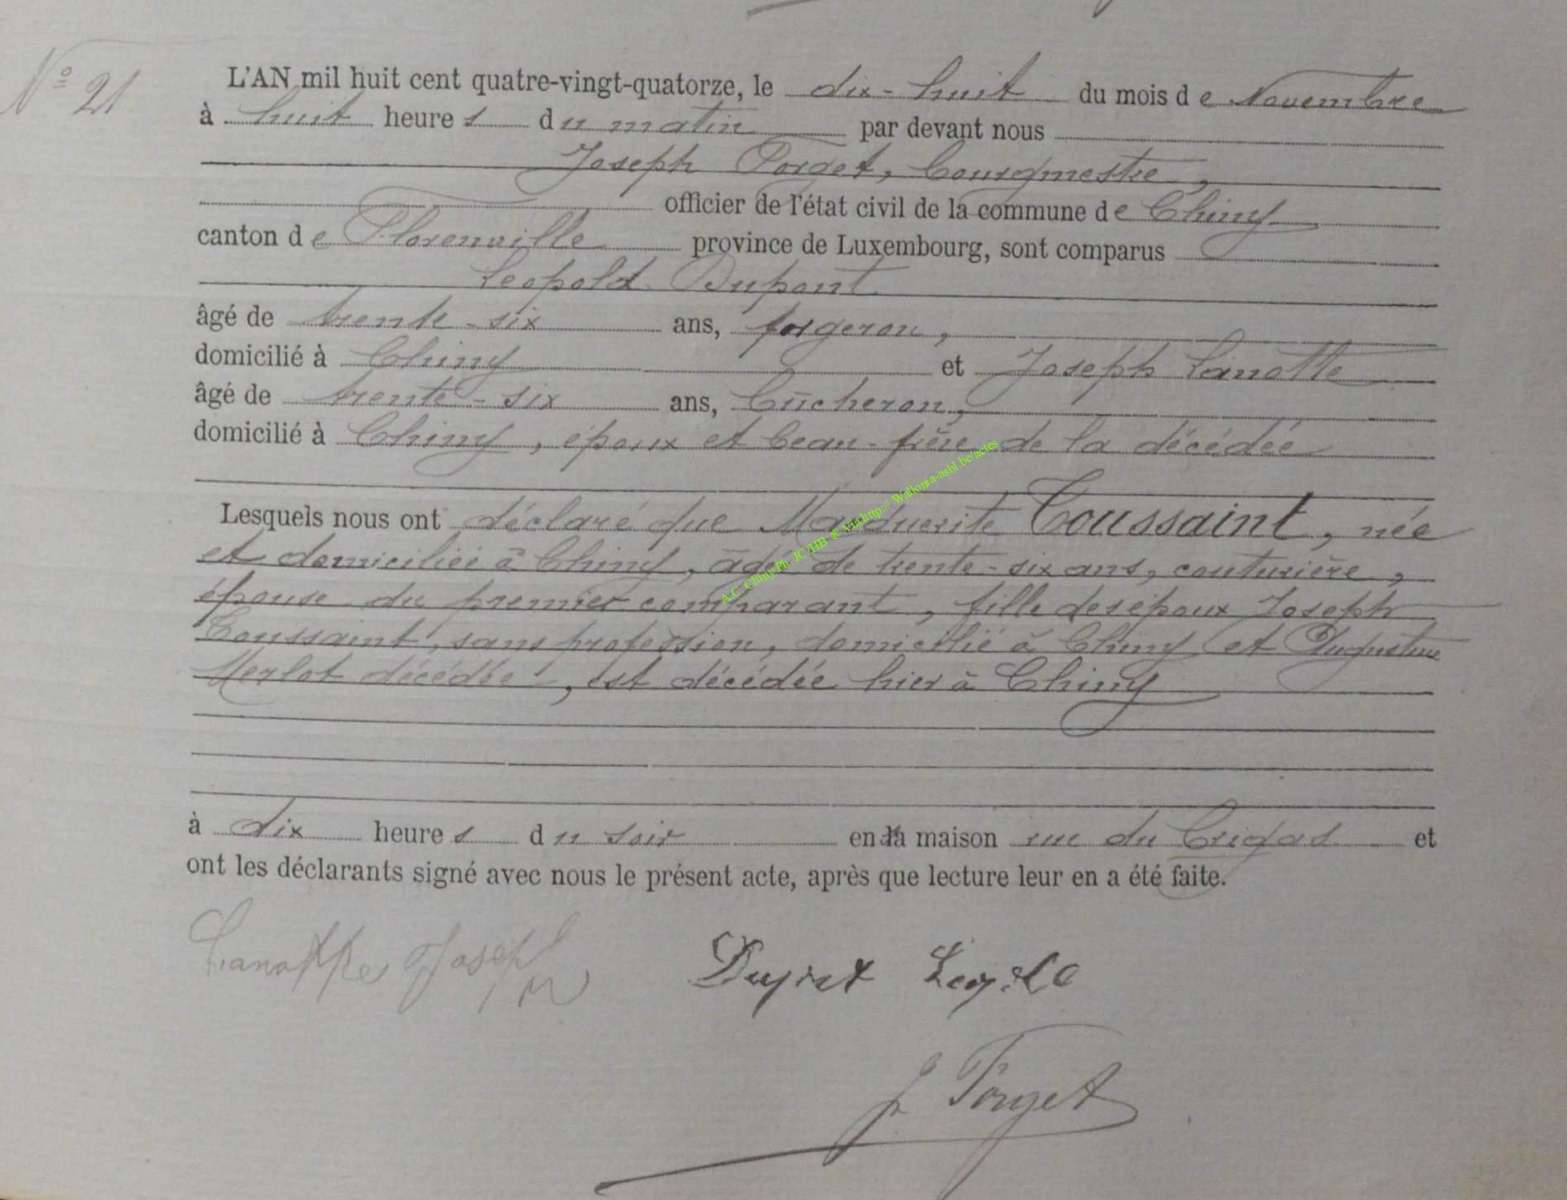 N° 21
L'AN mil huit cent quatre-vingt-quatorze, le dix-huit du mois de Novembre
à huit heures du matin par devant nous
Joseph Forget, bourgmestre,
officier de l'état civil de la commune de Chiny
canton de Florenville province de Luxembourg, sont comparus
Leopold Dupont
âgé de trente-six ans, forgeron,
domicilié à Chiny et Joseph Lanotte
âgé de trente-six ans, bûcheron,
domicilié à Chiny, époux et beau-frère de la décédée
Lesquels nous ont déclaré que Marguerite Toussaint, née
et domiciliée à Chiny, âgée de trente-six ans, couturière,
épouse du premier comparant, fille des époux Joseph
Toussaint, sans profession, domicilié à Chiny et Augustine
Merlot décédée, est décédée hier à Chiny
à dix heures du soir en la maison rue du
et
ont les déclarants signé avec nous le présent acte, après que lecture leur en a été faite.
Lanotte Joseph Dupont Leopold
J Forget